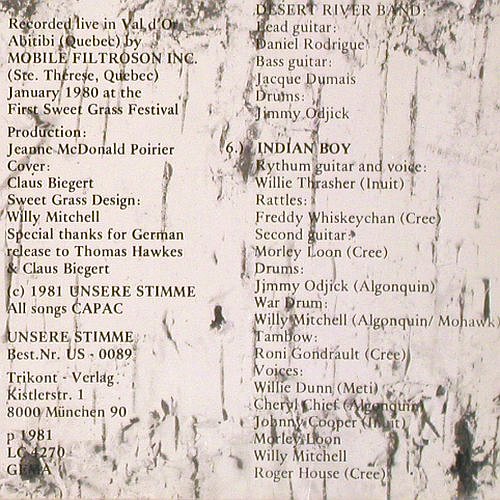 Recorded live in Val d'Or
Abitibi (Quebec) by
MOBILE FILTROSON INC.
(Ste. Therese, Quebec)
January 1980 at the
First Sweet Grass Festival
Production:
Jeanne McDonald Poirier
Cover:
Claus Biegert
Sweet Grass Design:
Willy Mitchell
Special thanks for German
release to Thomas Hawkes
& Claus Biegert
(c) 1981 UNSERE STIMME
All songs CAPAC
UNSERE STIMME
Best.Nr. US - 0089
Trikont - Verlag
Kistlerstr. 1
8000 München 90
p 1981
LC 4270
GEMA
DESERT RIVER BAND:
Lead guitar:
Daniel Rodrigue
Bass guitar:
Jacque Dumais
Drums:
Jimmy Odjick
6.) INDIAN BOY
Rythum guitar and voice:
Willie Thrasher (Inuit)
Rattles:
Freddy Whiskeychan (Cree)
Second guitar:
Morley Loon (Cree)
Drums:
Jimmy Odjick (Algonquin)
War Drum:
Willy Mitchell (Algonquin/ Mohawk
Tambow:
Roni Gondrault (Cree)
Voices:
Willie Dunn (Meti)
Cheryl Chief (Algonquin)
Johnny Cooper (Inuit)
Morley Loon
Willy Mitchell
Roger House (Cree)